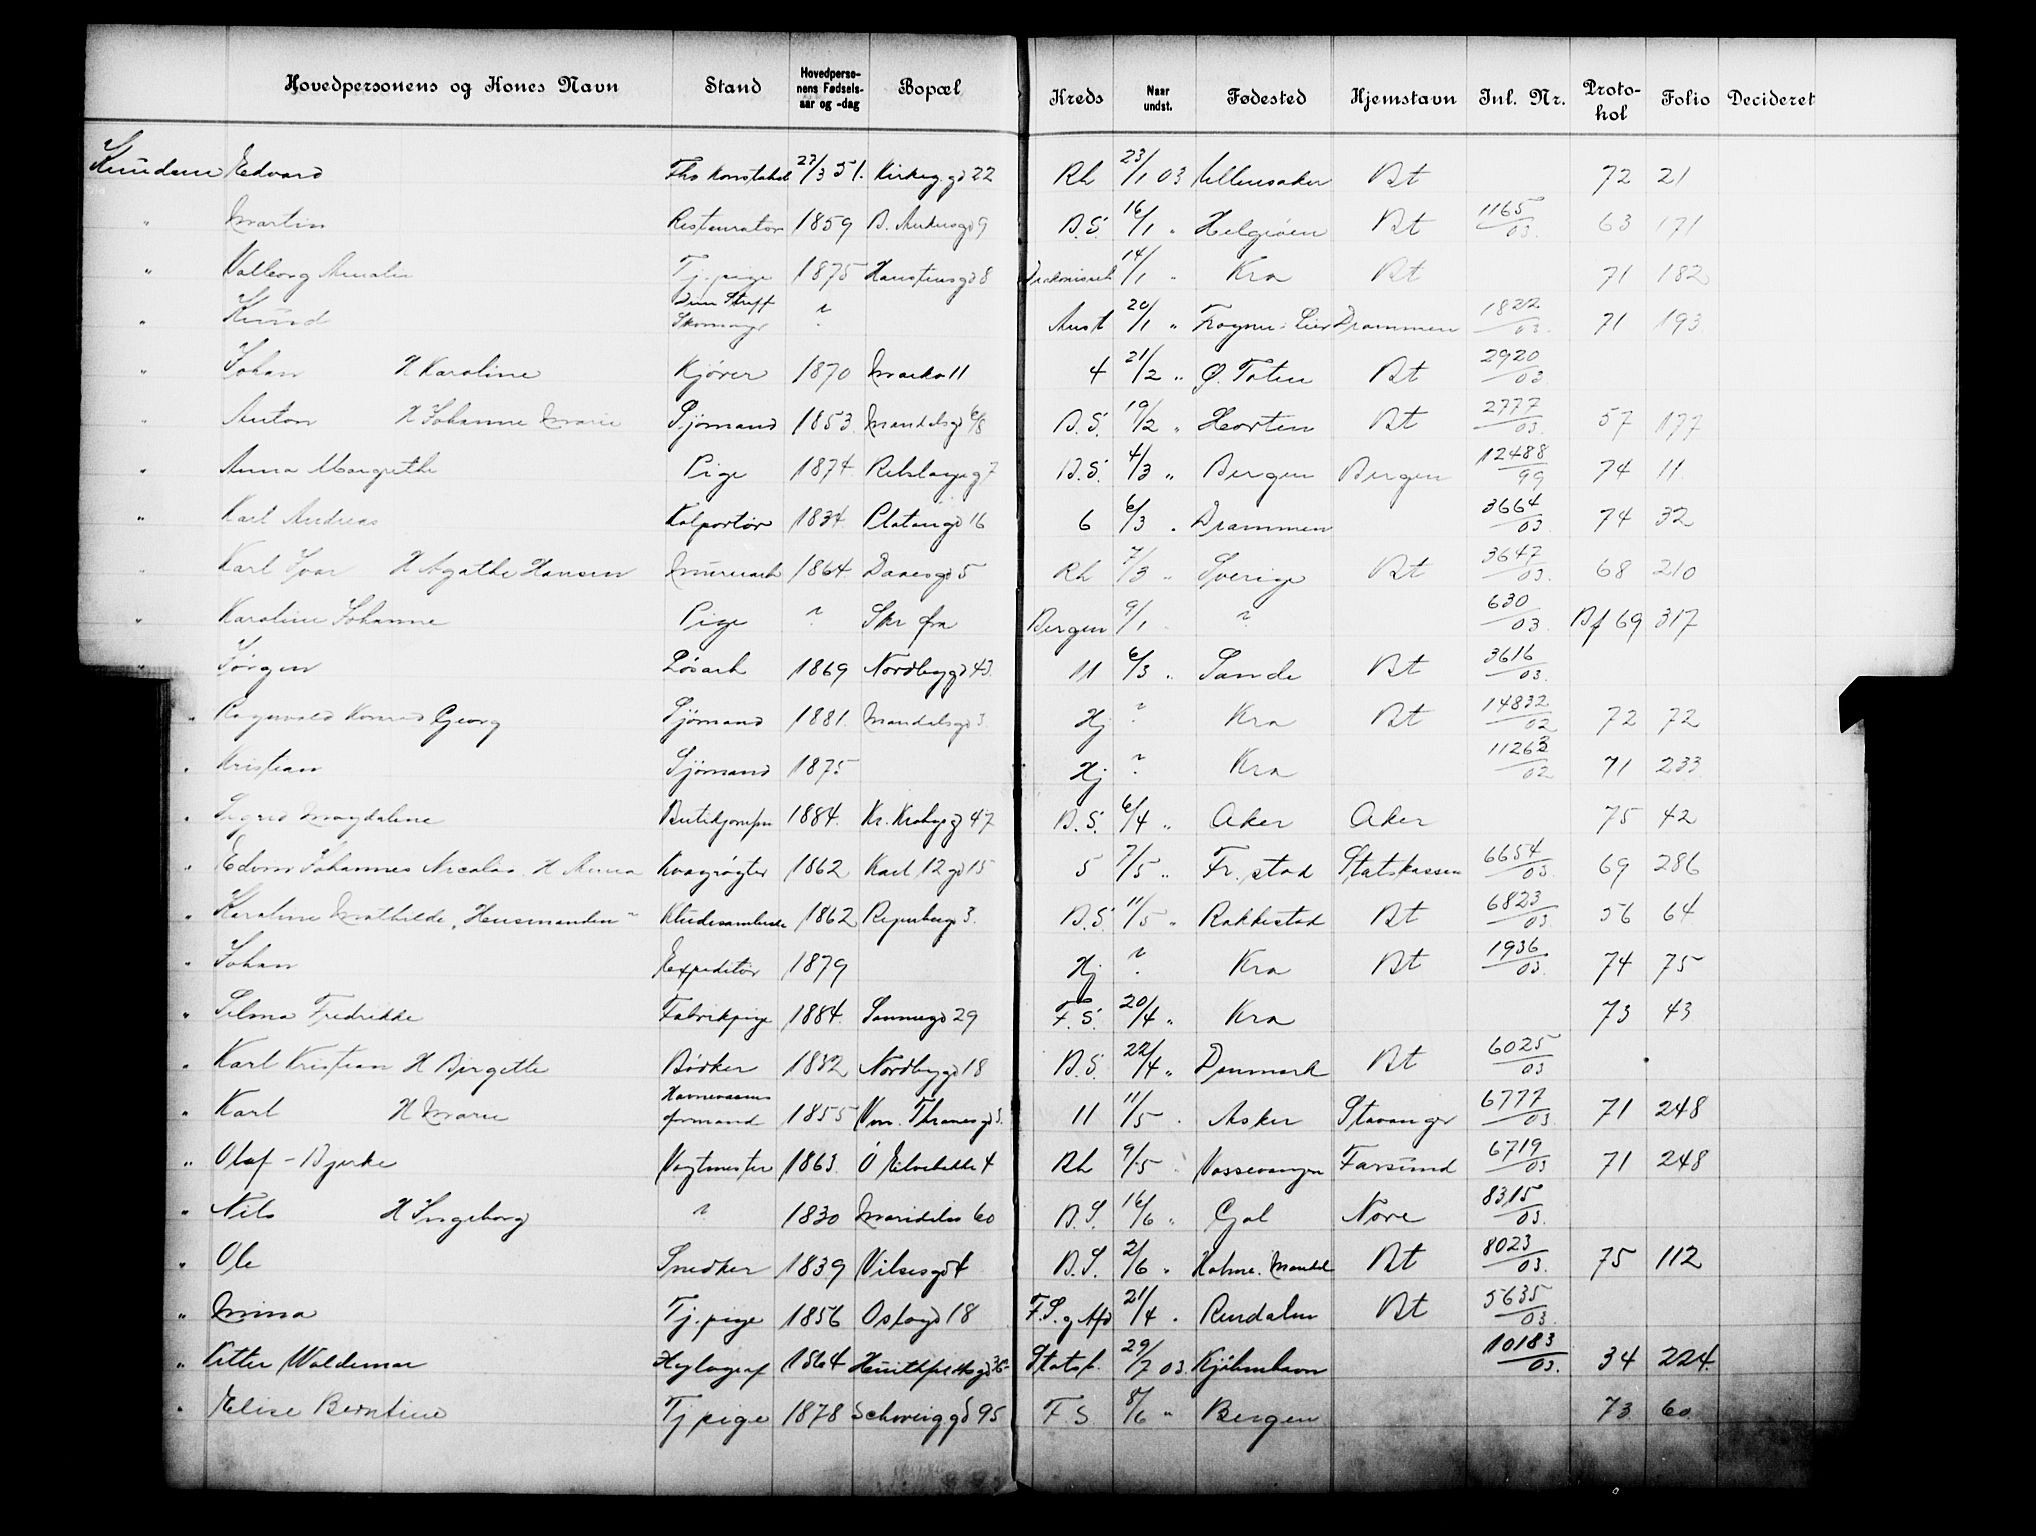 Hovedpersonens og Kones Navn Stand Hovedpersonens Fødselsaar og -dag Bopæl Kreds Naar undst. Fødested Hjemstavn Inl. Nr. Protokol Folio Decideret
Knudsen Edvard Fhs Konstabel 23/3 51. Kirkeg.gd 22 Rh 23/1 03 Ullensaker Bt 72 21
" Martin Restauratør 1859 B. Ankersgd 9 B.S. 16/1 " Helgøen Bt 1165/03. 63 171
" Valborg Amalie Tj.pige 1875 Haustensgd 8 14/1 " Kra Bt 71 182
" Knud Skomager ? Aust 20/1 " Frogner i Lier Drammen 1822/03. 71 193
" Johan H Karoline Kjører 1870 Markv 11 4 21/2 " Ø. Toten Bt 2920/03.
" Anton H Johanne Marie Sjømand 1853. Mandalsgd 6/8 B.S. 19/2 " Horten Bt 2777/03. 57 177
" Anna Margrethe Pige 1874. Rebslagerg 7 B.S. 4/3 " Bergen Bergen 12488/99 74 11.
" Karl Andreas Kolportør 1834. Platangd 16 6 6/3 " Drammen 3664/03. 74 32
" Karl Ivar H Agathe Hansen Murerarb 1864 Daaesgd 5 Rh 7/3 " Sverige Bt 3647/03. 68 210
" Karoline Johanne Pige ? Skr fra Bergen 9/1 ? 630/03. Bf 69 317
" Jørgen Løsarb 1869 Nordbygd 43. 11 6/3 " Sande Bt 3616/03.
" Ragnvald Konrad Georg Sjømand 1881. Mandalsgd 3. Hj ? Kra Bt 14832/02 72 72
" Kristian Sjømand 1875 Hj ? Kra 11263/02 71 233
" Sigrid Magdalene Butikjomfru 1884. Kr. Krohgsg 47 B.S. 6/4 " Aker Aker 75 42
" Edvin Johannes Nicolai H Anna Kvægrøgter 1862 Karl 12 gd 15 5 7/5 " Fr.stad Statskassen 6654/03. 69 286
" Karoline Mathilde "Husmanden" Kludesamlerske 1862 Reperbang 3. B.S. 11/5 " Rakkestad Bt 6823/03. 56 64
" Johan Expeditør 1879 Hj ? Kra Bt 1936/03. 74 75
" Selma Fredrikke Fabrikpige 1884. Sannergd 29 F.S. 20/4 " Kra 73 43
" Karl Kristian H Birgette Bødker 1832 Nordbygd 18 B.S. 22/4 " Danmark Bt 6025/03
" Karl H Marie Havnevæsens formand 1855 Vm. Thranesgd 11 11/5 " Asker Stavanger 6777/03. 71 248
" Olaf - Bjerke Vagtmester 1863. Ø Elvebakke 4 Rh 9/5 " Vossevangen Farsund 6719/03 71 248
" Nils H Ingeborg ? 1830 Maridalsv 60 B.S. 16/6 " Gol Nore 8315/03.
" Ole Snedker 1839 Vilsesgd 4 B.S. 2/6 " Holme. Mandal Bt 8023/03. 75 112
" Mina Tj.pige 1856 Oslogd 18 F.S. g Afd 21/4 " Rendalen Bt 5635/03.
" Petter Waldemar Hylograf 1864 Huitfeldtsgd Statsf. 29/7 03. Kjøbenhavn 10183/03. 34 224.
" Elise Berntine Tj pige 1878 Schweiggd 95 F.S. 8/6 " Bergen 73 60